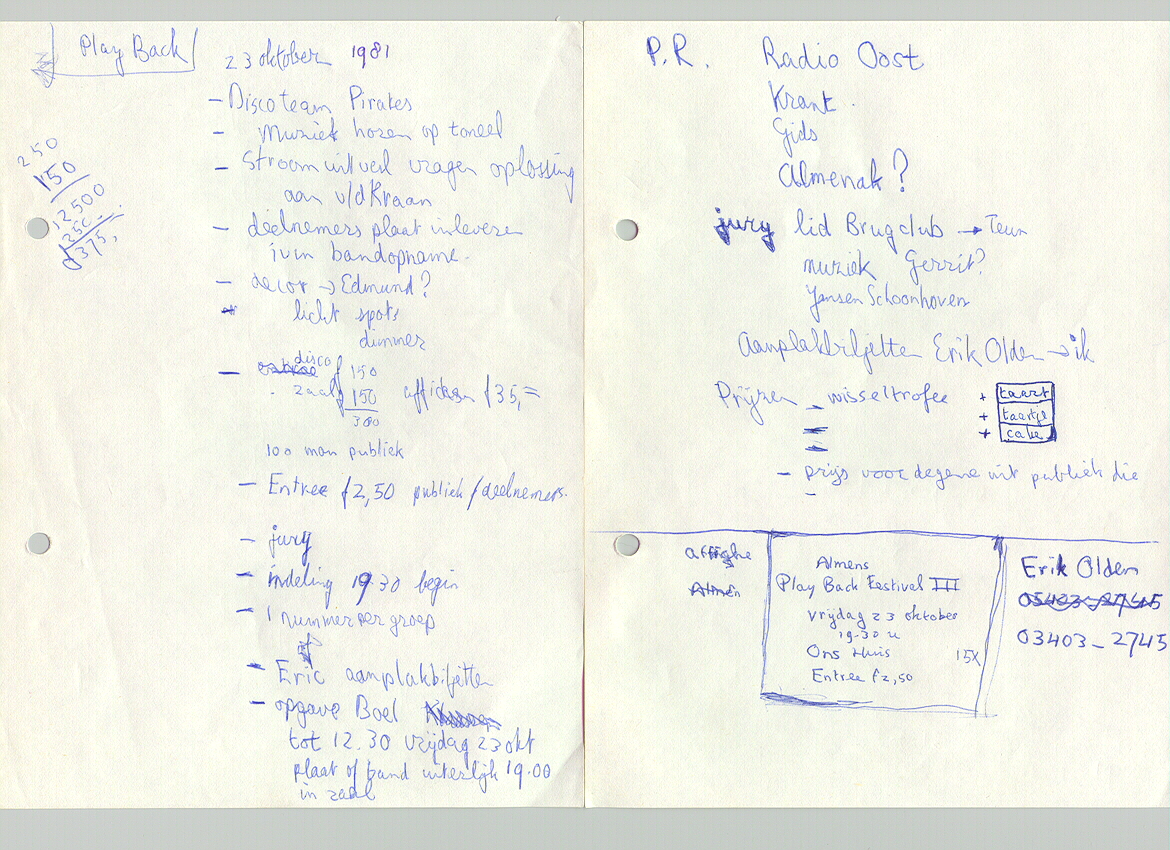 Play Back
23 oktober 1981
- Discoteam Pirates
- Muziek hozen op toneel
- Stroomuitveil vragen oplossing
aan v/d Kraan
- deelnemers plaat inleveren
ivm bandopname.
- decor → Edmund?
licht spots
dimmer
250
150
12500
250
f 375,
- disco f 150
zaal f 150 affiches f 35,=
300
100 man publiek
- Entree f 2,50 publiek / deelnemers.
- jury
- indeling 19.30 begin
- 1 nummer per groep
- Eric aanplakbiljetten
- opgave Boel
tot 12.30 vrijdag 23 okt
plaat of band uiterlijk 19.00
in zaal
P.R. Radio Oost
Krant.
Gids
Almenak?
jury lid Brugclub → Teun
muziek Gerrit?
Jansen Schoonhoven
Aanplakbiljetten Erik Olden → ik
Prijzen - wisseltrofee
+ taart
+ taartje
+ cake
- prijs voor degene uit publiek die
-
affighe
Almen
Almens
Play Back Festival III
vrijdag 23 oktober
19-30 u
Ons Huis 15X
Entree f 2,50
Erik Olden
05423-27445
03403-2745